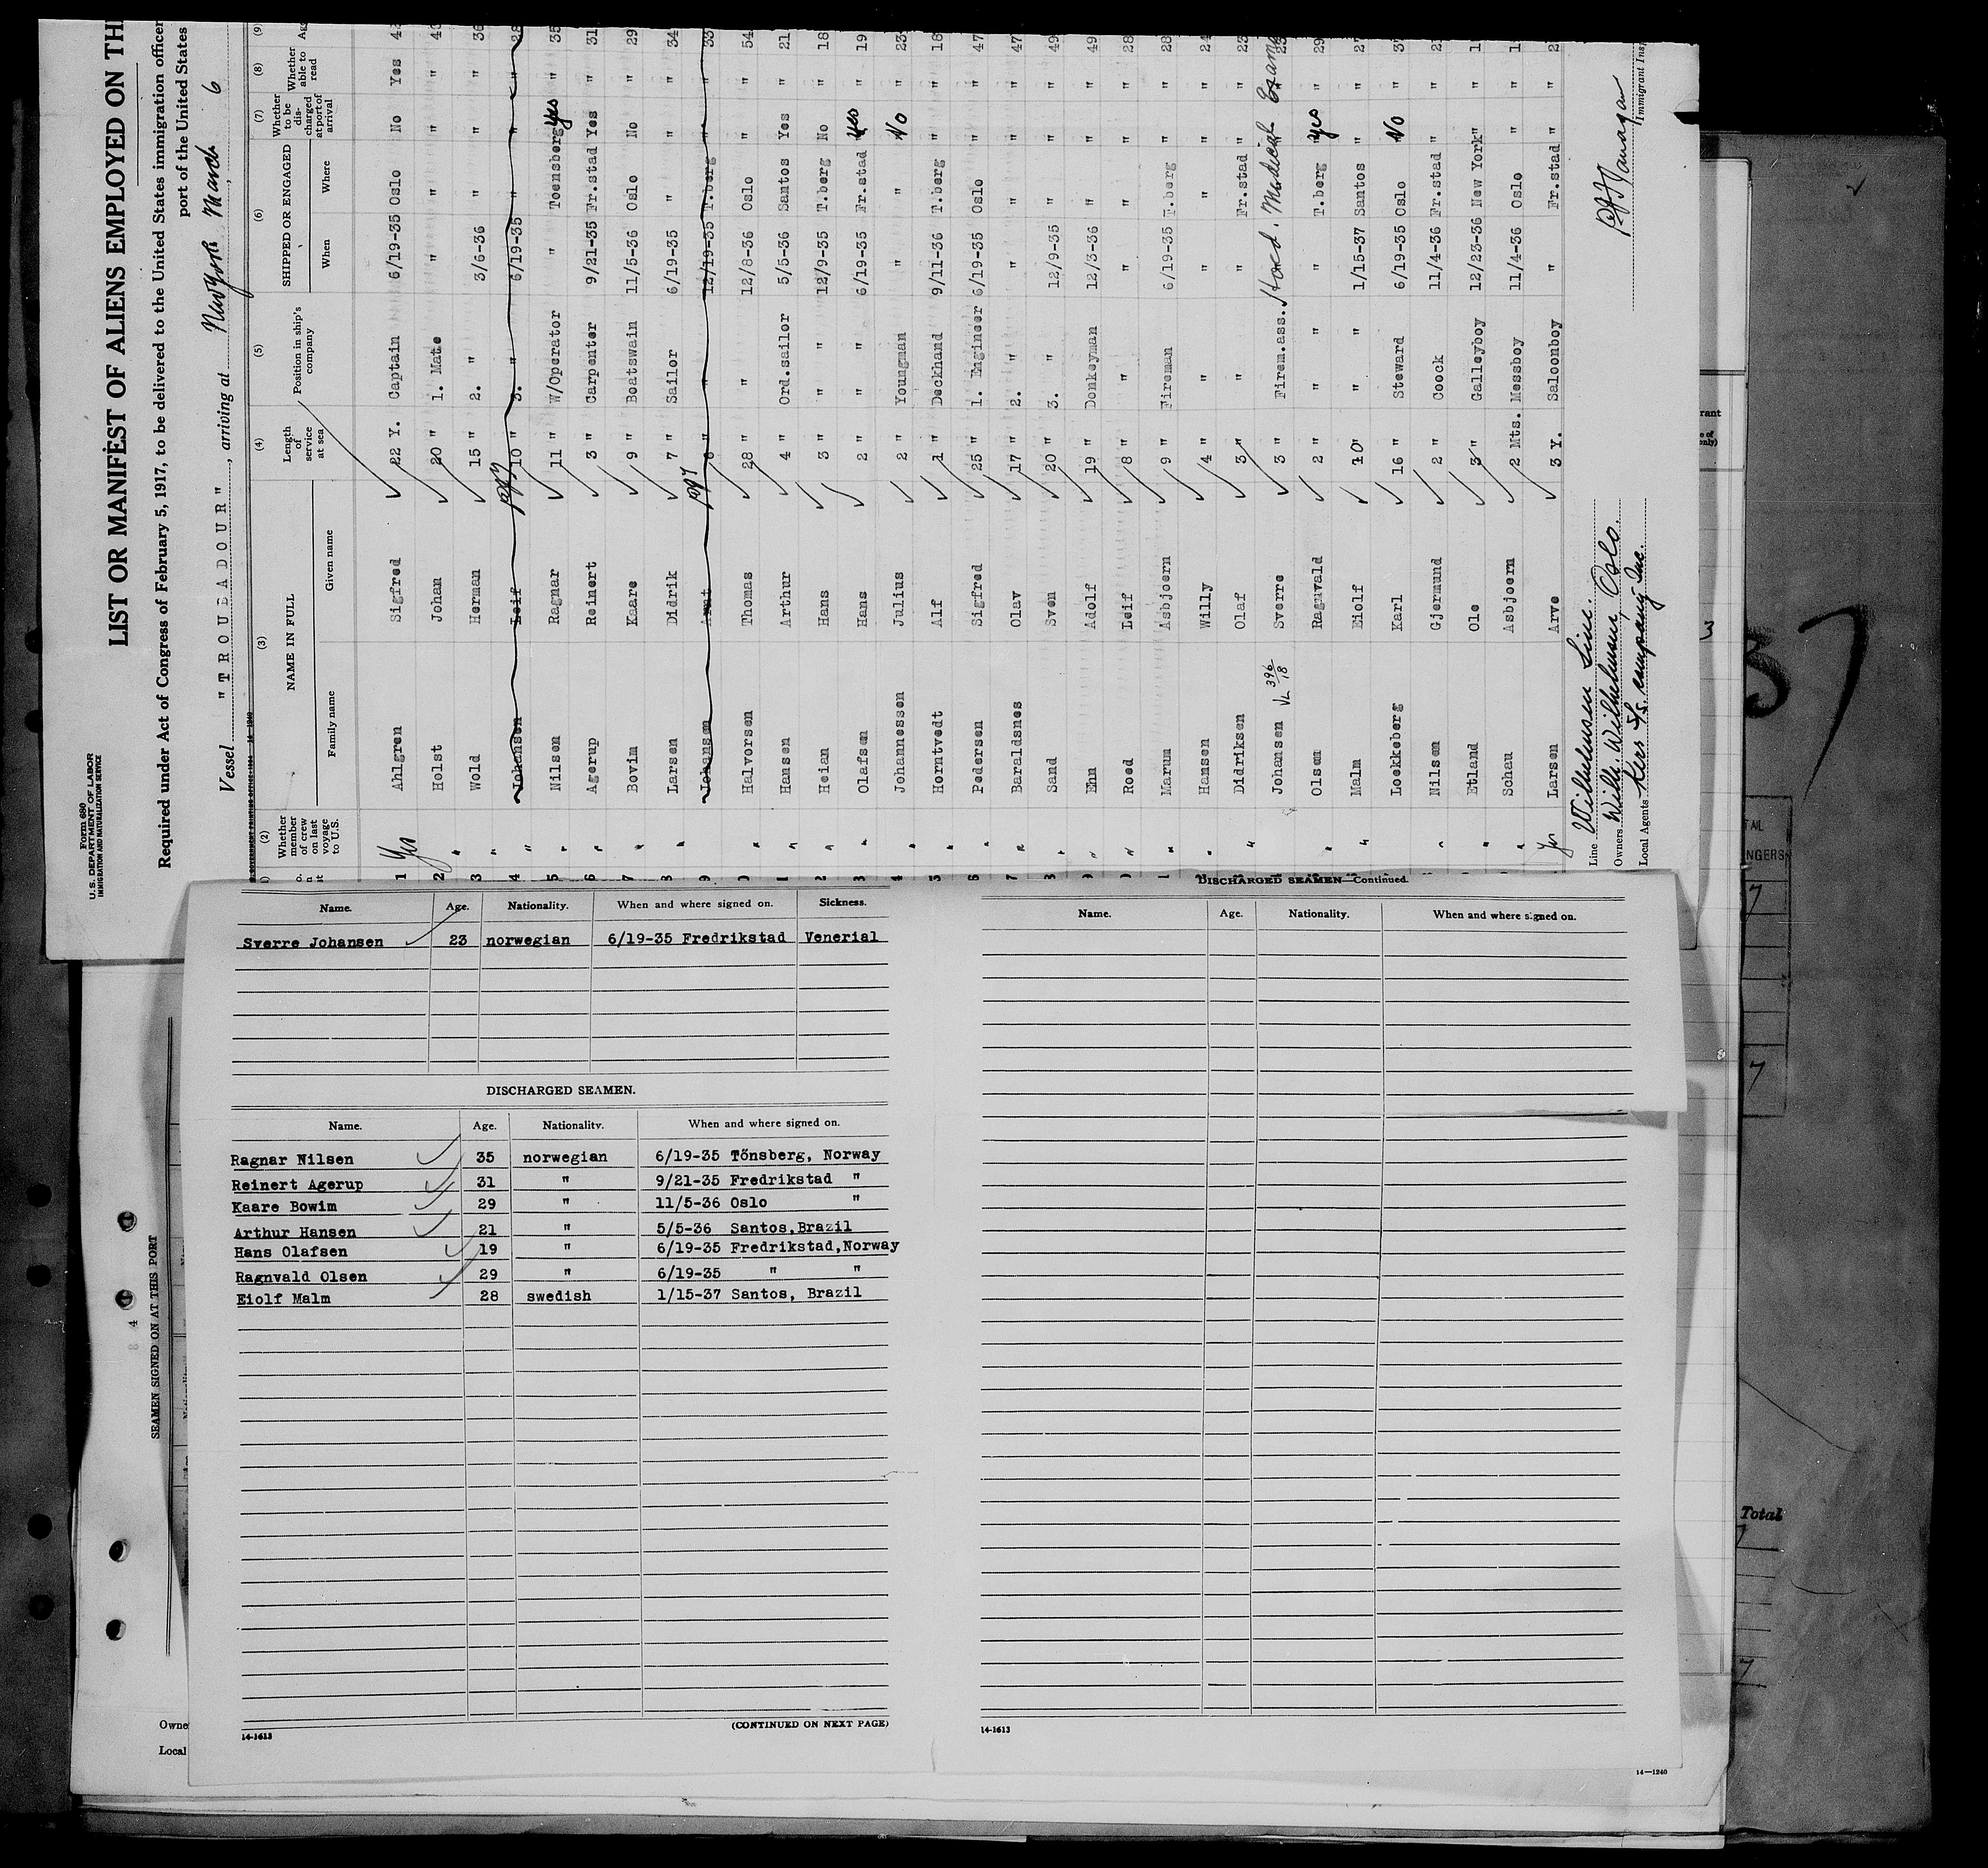 Form 680
U.S. DEPARTMENT OF LABOR
IMMIGRATION AND NATURALIZATION SERVICE
LIST OR MANIFEST OF ALIENS EMPLOYED ON TH
Required under Act of Congress of February 5, 1917, to be delivered to the United States immigration officer
port of the United States
Vessel "TROUBADOUR", arriving at New York March 6
(2) (3) (4) (5) (6) (7) (8) (9)
Whether member of crew on last voyage to U.S. NAME IN FULL Length of service at sea Position in ship's company SHIPPED OR ENGAGED Whether to be discharged at port of arrival Whether able to read Ag
Family name Given name When Where
1 Yes Ahlgren Sigfred 22 Y. Captain 6/19-35 Oslo No Yes 4
2 " Holst Johan 20 " 1. Mate " " " " 4
3 " Wold Herman 15 " 2. " 3/6-36 " " " 36
4 " Johansen Leif 10 " 3. " 6/19-35 " " " 28
5 " Nilsen Ragnar 11 " W/Operator " Toensberg yes " 35
6 " Agerup Reinert 3 " Carpenter 9/21-35 Fr.stad Yes " 31
7 " Bovim Kaare 9 " Boatswain 11/5-36 Oslo No " 29
8 " Larsen Didrik 7 " Sailor 6/19-35 " " " 34
9 Johansen Arnt 6 " " 12/19-35 T.berg " " 33
0 " Halvorsen Thomas 28 " " 12/8-36 Oslo " " 54
1 " Hansen Arthur 4 " Ord.sailor 5/5-36 Santos Yes " 21
2 " Heian Hans 3 " " 12/9-35 T.berg No " 18
3 " Olafsen Hans 2 " " 6/19-35 Fr.stad yes " 19
4 " Johannessen Julius 2 " Youngman " " No " 23
5 " Horntvedt Alf 1 " Deckhand 9/11-36 T.berg " " 18
6 " Pedersen Sigfred 25 " 1. Engineer 6/19-35 Oslo " " 47
7 " Baraldsnes Olav 17 " 2. " " " " " 47
8 " Sand Sven 20 " 3. " 12/9-35 " " " 49
9 " Enn Adolf 19 " Donkeyman 12/3-36 " " " 49
0 " Roed Leif 8 " " " " " " 28
1 " Marum Asbjoern 9 " Fireman 6/19-35 T.berg " " 28
Hansen Willy 4 " " " " " " 24
Didriksen Olaf 3 " " " Fr.stad " " 23
Johansen VL 396/18 Sverre 3 " Firem.ass. Hosd. Medical Exam
Olsen Ragnvald 2 " " " T.berg yes " 29
Malm Eiolf 10 " " 1/15-37 Santos " " 27
Loekkeberg Karl 16 " Steward 6/19-35 Oslo No " 37
Nilsen Gjermund 2 " Coock 11/4-36 Fr.stad " " 2
Etland Ole 3 " Galleyboy 12/23-36 New York " " 1
Schau Asbjoern 2 Mts. Messboy 11/4-36 Oslo " " 1
yes Larsen Arve 3 Y. Saloonboy " Fr.stad " " 2
Line Wilhelmsen Line.
Owners Wilh. Wilhelmsen, Oslo.
Local Agents Company Inc.
Immigrant Ins
Name. Age. Nationality. When and where signed on. Sickness.
Sverre Johansen 23 norwegian 6/19-35 Fredrikstad Venerial
DISCHARGED SEAMEN.
Name. Age. Nationality. When and where signed on.
Ragnar Nilsen 35 norwegian 6/19-35 Tönsberg, Norway
Reinert Agerup 31 " 9/21-35 Fredrikstad "
Kaare Bowim 29 " 11/5-36 Oslo "
Arthur Hansen 21 " 5/5-36 Santos,Brazil
Hans Olafsen 19 " 6/19-35 Fredrikstad,Norway
Ragnvald Olsen 29 " 6/19-35 " "
Eiolf Malm 28 swedish 1/15-37 Santos, Brazil
14-1613
(CONTINUED ON NEXT PAGE)
DISCHARGED SEAMEN—Continued.
Name. Age. Nationality. When and where signed on.
14-1613
14—1240
SEAMEN SIGNED ON AT THIS PORT
Owne
Local
rant
NGERS
7
7
Total
7
37